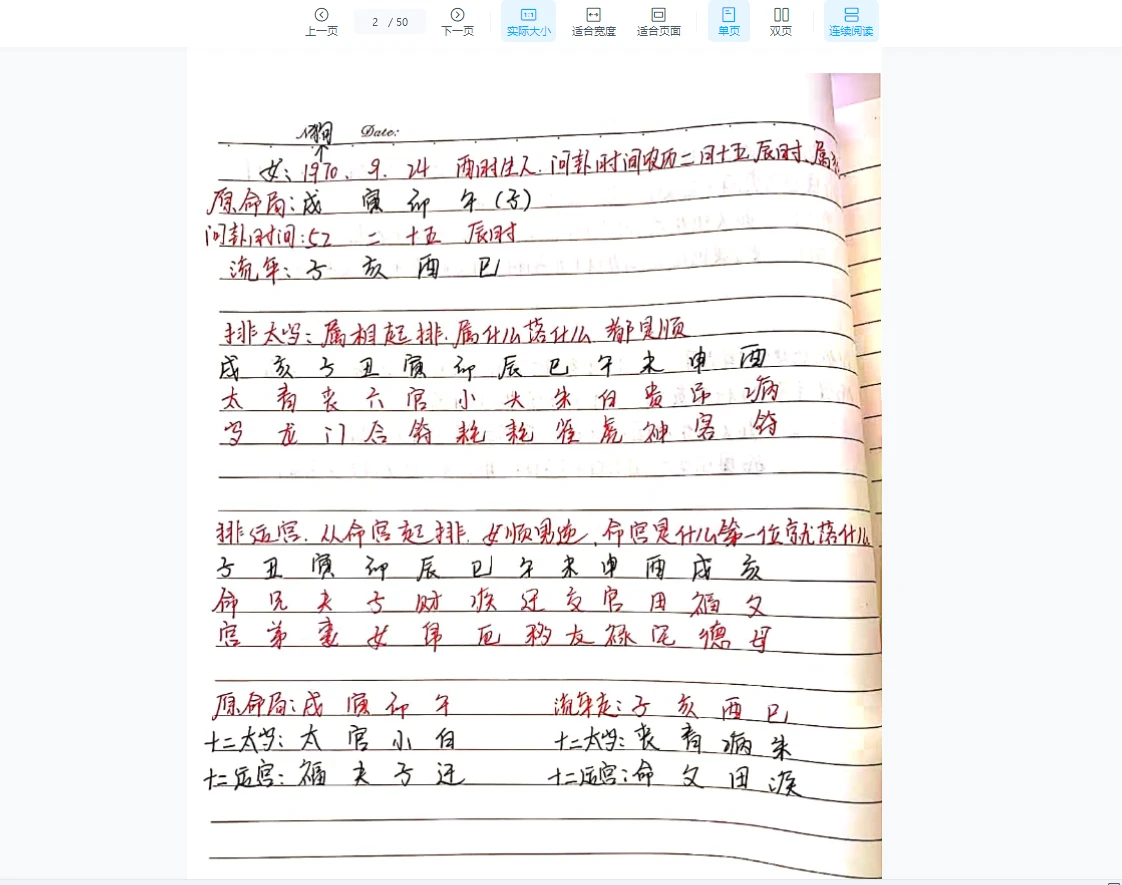 上一页 2 / 50 下一页 实际大小 适合宽度 适合页面 单页 双页 连续阅读
狗 Date:
女: 1970. 9. 24 酉时生人. 问卦时间农历二月十五辰时. 属
原命局: 戌 寅 卯 午 (子)
问卦时间: 52 二 十五 辰时
流年: 子 亥 酉 巳
排太岁: 属相起排. 属什么落什么 都是顺
戌 亥 子 丑 寅 卯 辰 巳 午 未 申 酉
太 青 丧 六 官 小 大 朱 白 贵 吊 病
岁 龙 门 合 符 耗 耗 雀 虎 神 客 符
排运宫. 从命宫起排. 女顺男逆. 命宫是什么第一位就落什么
子 丑 寅 卯 辰 巳 午 未 申 酉 戌 亥
命 兄 夫 子 财 疾 迁 交 官 田 福 父
宫 弟 妻 女 帛 厄 移 友 禄 宅 德 母
原命局: 戌 寅 卯 午 流年走: 子 亥 酉 巳
十二太岁: 太 官 小 白 十二太岁: 丧 青 病 朱
十二运宫: 福 夫 子 迁 十二运宫: 命 父 田 疾